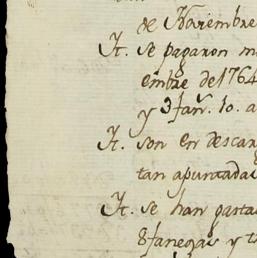 de Noviembre
It. se pagaron m
embre de 1764
y 3 fan.s 10. a
It. son en descar
tan apuraadas
It. se han gasta
8 fanegas y t